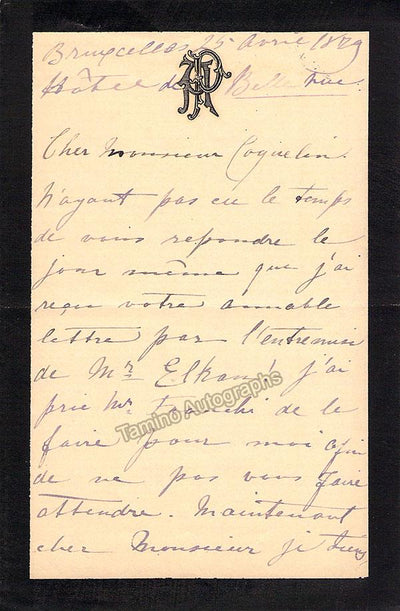 Bruxelles 25 Avril 1879
Hôtel de Belle Vue.
Cher Monsieur Coquelin.
N'ayant pas eu le temps
de vous repondre le
jour même que j'ai
reçu votre aimable
lettre par l'entremise
de Mr Elkan, j'ai
prié Mr de le
faire pour moi afin
de ne pas vous faire
attendre. Maintenant
cher Monsieur je tiens
Tamino Autographs